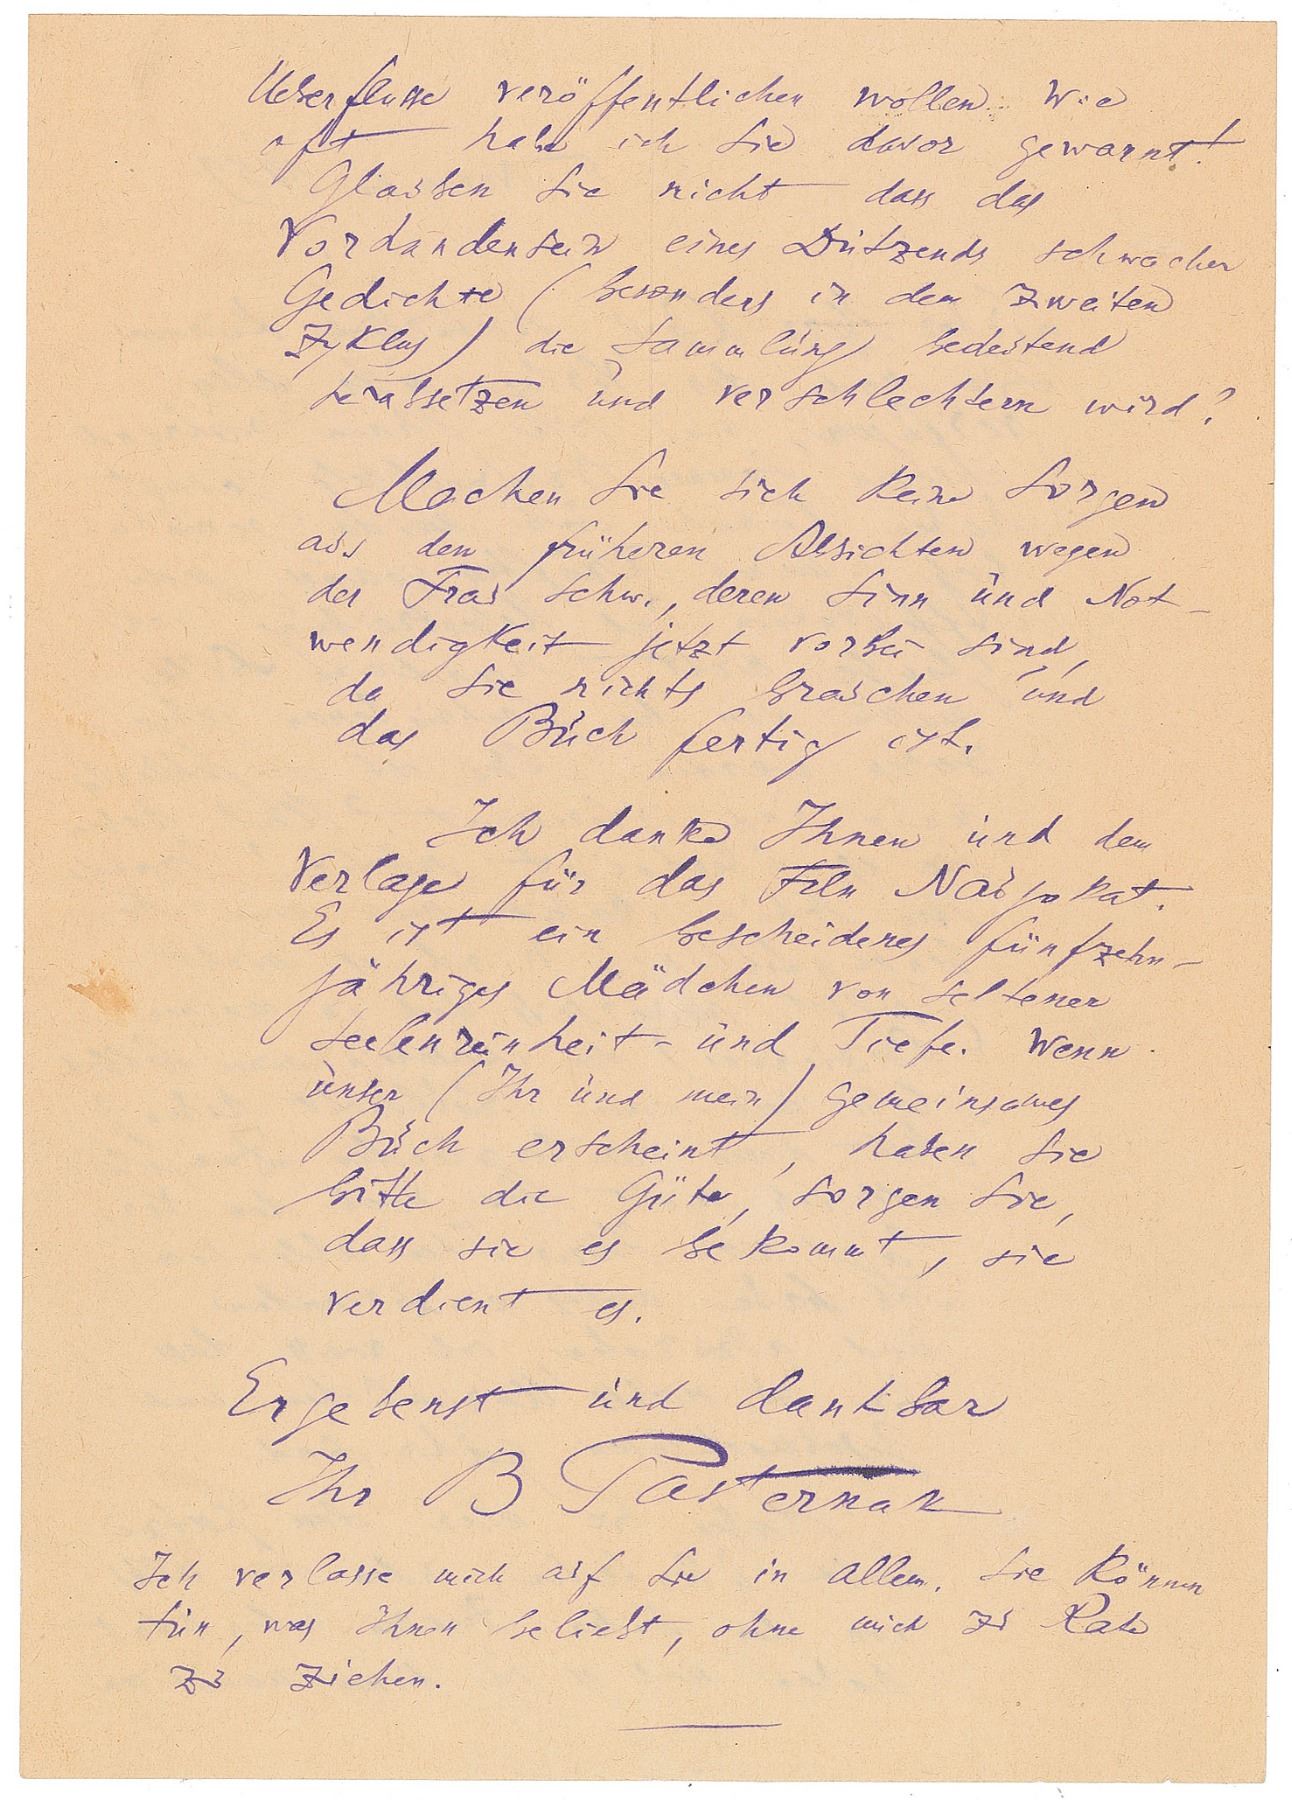 Ueberflusse veröffentlichen wollen. Wie
oft habe ich Sie davor gewarnt!
Glauben Sie nicht dass das
Vorhandensein eines Dutzends schwacher
Gedichte (besonders in dem zweiten
Zyklus) die Sammlung bedeutend
herabsetzen und verschlechtern wird?
Machen Sie sich keine Sorgen
aus den früheren Absichten wegen
der Frau Schw., deren Sinn und Not-
wendigkeit jetzt vorbei sind,
da Sie nichts brauchen und
das Buch fertig ist.
Ich danke Ihnen und dem
Verlage für das Frln
Es ist ein bescheidenes fünfzehn-
jähriges Mädchen von seltener
Seelenreinheit- und Tiefe. Wenn
unser (Ihr und mein) gemeinsames
Buch erscheint, haben Sie
bitte die Güte, sorgen Sie,
dass sie es bekommt, sie
verdient es.
Ergebenst und dankbar
Ihr B Pasternak
Ich verlasse mich auf Sie in allem. Sie können
tun, was Ihnen beliebt, ohne mich zu Rate
zu ziehen.